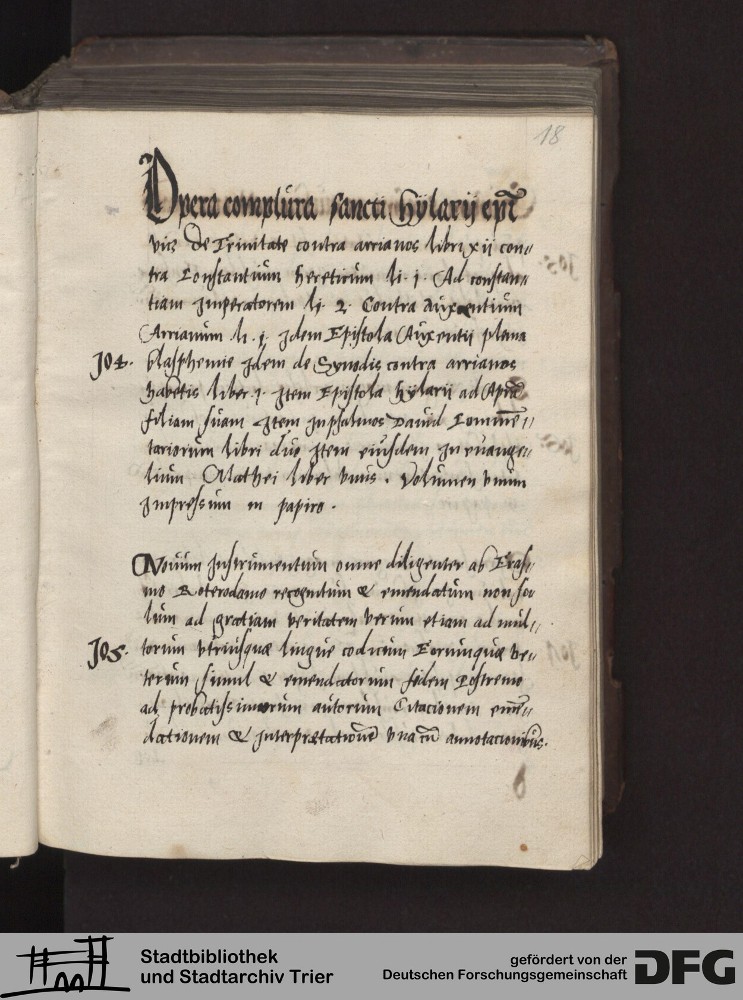 18
Opera complura sancti hÿlarij ep̅i
vic̣ De Trinitate contra arrianos libri xij con„
tra Constantium hereticum li. j. Ad constan„
tiam Imperatorem lj. 2. Contra Auxentium
Arrianum li. j. Idem Epistola Auxentij plena
J04. blasphemie Idem de Synodis contra arrianos
habetis liber j. Item Epistola hylarij ad Aprā
filiam suam Item In psalmos Dauid Comme̅„
tariorum libri duo Item eiusdem In euange„
lium Mathei liber vnus. Volumen vnum
Impressum in papiro.
Nouum Instrumentum omne diligenter ab Eras„
mo Roterodamo recognitum & emendatum non so
lum ad gratiam veritatem verum etiam ad mul„
J05. torum vtriusque lingue codicum Eorumque ve„
terum simul & emendatorum fidem Postremo
ad probatissimorum autorum Citacionem eme̅„
dationem & Interpretatione̅ vna cu̅ annotacionibus.
Stadtbibliothek
und Stadtarchiv Trier
gefördert von der
Deutschen Forschungsgemeinschaft
DFG